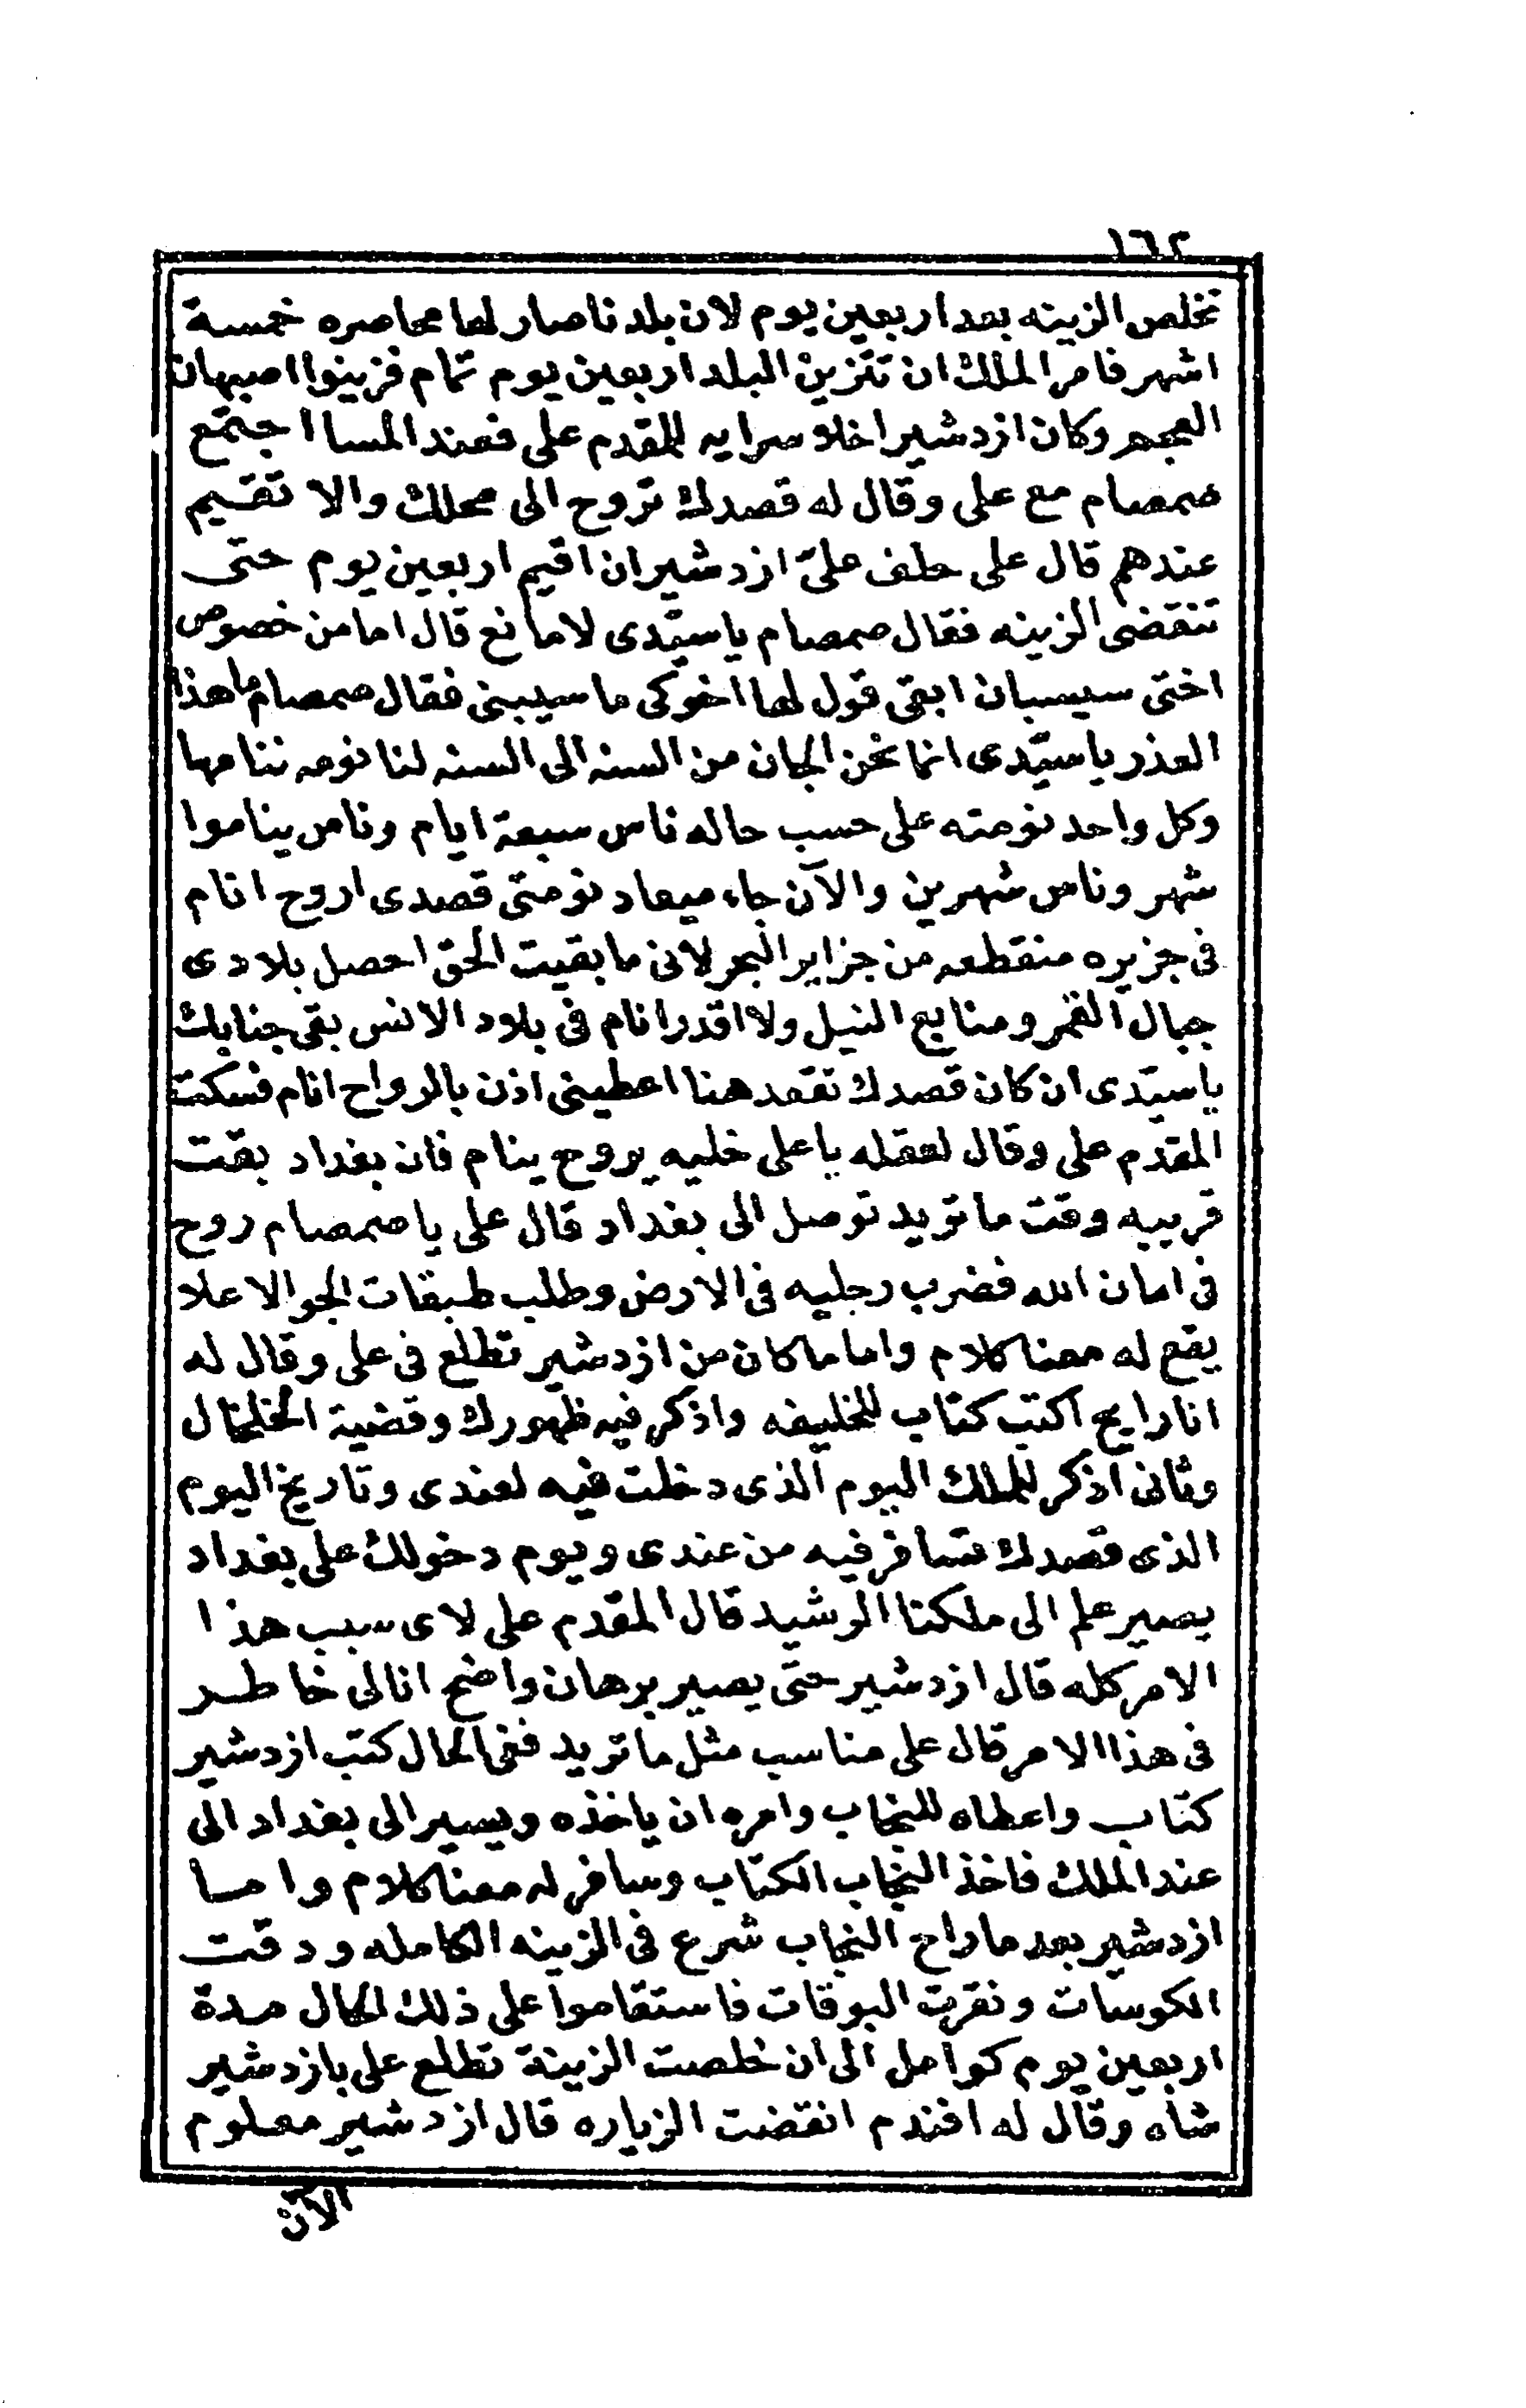 ١٦٢
تخلص الزينه بعد اربعين يوم لان بلدنا صار لها محاصره خمسة
اشهر فامر الملك ان تتزين البلد اربعين يوم تمام فزينوا اصبهان
العجم وكان ازدشير اخلا سرايه للمقدم على فعند المسا اجتمع
صمصام مع على وقال له قصدك تروح الى محلك والا تقيم
عندهم قال على حلف علىّ ازدشير ان اقيم اربعين يوم حتى
تنقضى الزينه فقال صمصام يا سيّدى لا مانع قال اما من خصوص
اختى سيسبان ابقى قول لها اخوكى ما سيبنى فقال صمصام ما هذا
العذر يا سيّدى انما نحن الجان من السنه الى السنه لنا نومه ننامها
وكل واحد نومته على حسب حاله ناس سبعة ايام وناس يناموا
شهر وناس شهرين والآن جاء ميعاد نومتى قصدى اروح انام
فى جزيره منقطعه من جزاير البحر لانى ما بقيت الحق احصل بلادى
جبال القمر ومنابع النيل ولا اقدر انام فى بلاد الانس بقى جنابك
يا سيّدى ان كان قصدك تقعد هنا اعطينى اذن بالرواح انام فسكت
المقدم على وقال لعقله يا على خليه يروح ينام فان بغداد بقت
قريبه وقت ما تريد توصل الى بغداد قال على يا صمصام روح
فى امان الله فضرب رجليه فى الارض وطلب طبقات الجو الاعلا
يقع له معنا كلام واما ما كان من ازدشير تطلع فى على وقال له
انا رايح اكتب كتاب للخليفه واذكر فيه ظهورك وقضية الخلخال
وثانى اذكر للملك اليوم الذى دخلت فيه لعندى وتاريخ اليوم
الذى قصدك تسافر فيه من عندى ويوم دخولك على بغداد
يصير علم الى ملكنا الرشيد قال المقدم على لاى سبب هذا
الامر كله قال ازدشير حتى يصير برهان واضح انا لى خاطر
فى هذا الامر قال على مناسب مثل ما تريد ففى الحال كتب ازدشير
كتاب واعطاه للنجاب وامره ان ياخذه ويسير الى بغداد الى
عند الملك فاخذ النجاب الكتاب وسافر له معنا كلام واما
ازدشير بعد ما راح النجاب شرع فى الزينه الكامله ودقت
الكوسات ونقرت البوقات فاستقاموا على ذلك الحال مدة
اربعين يوم كوامل الى ان خلصت الزينة تطلع على بازدشير
شاه وقال له افندم انقضت الزياره قال ازدشير معلوم
الآن